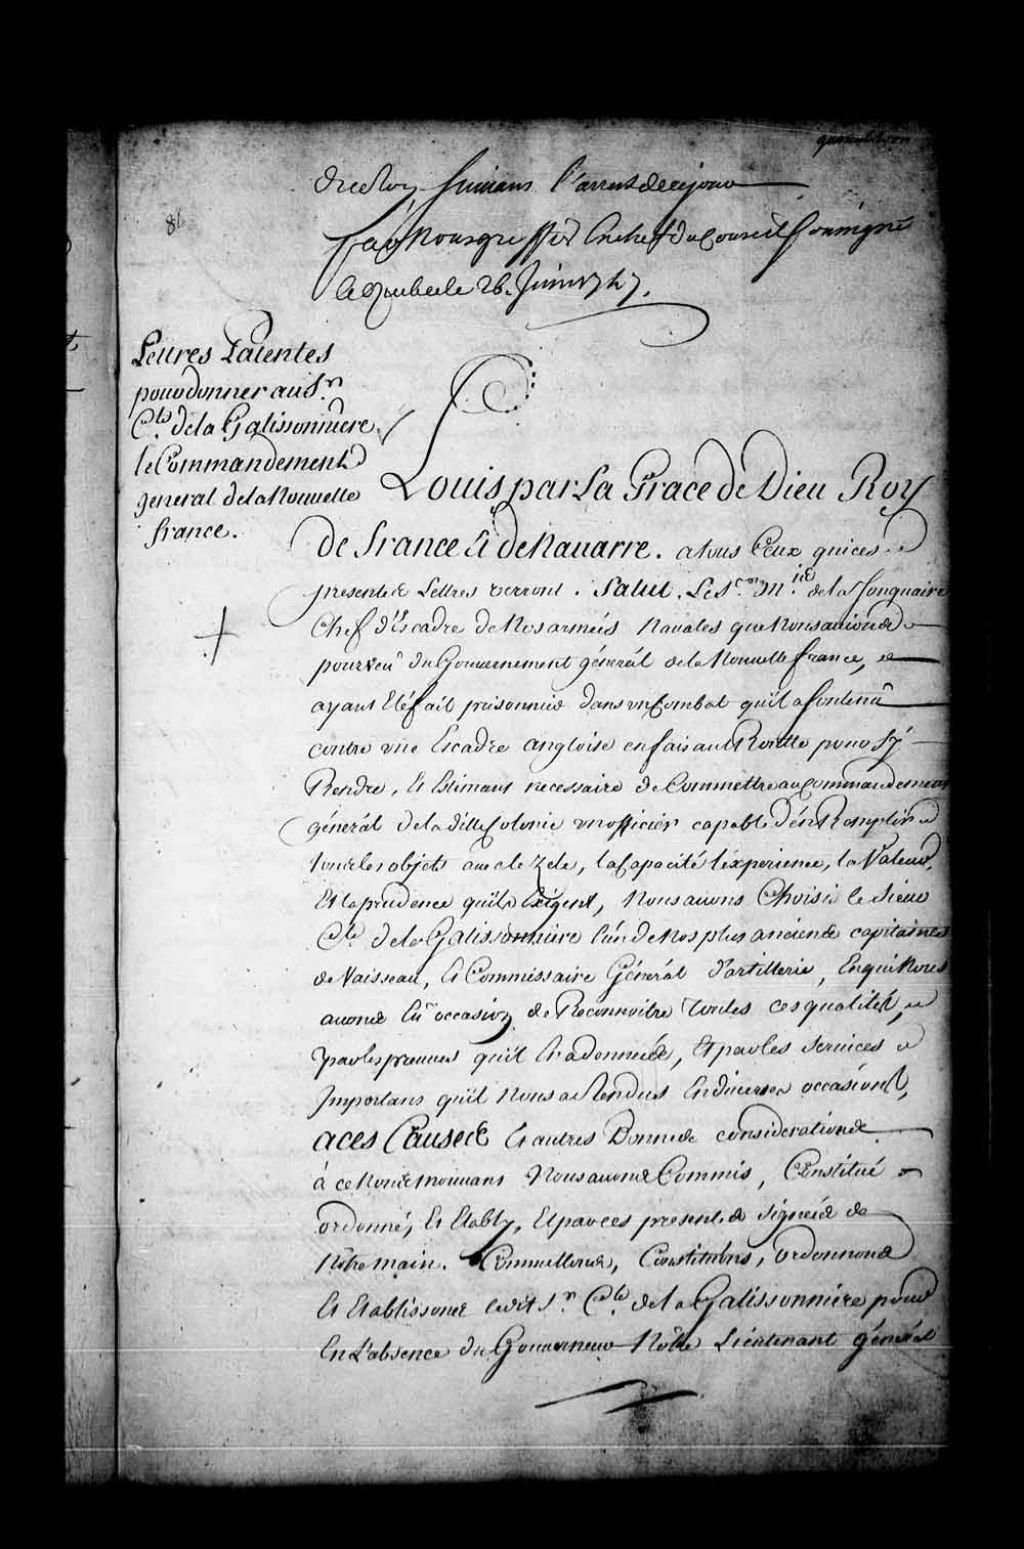 du Roy suivans l'arrest de ce jour
par Nous greffier En chef du Conseil Soussigné
le 26. Juin 1747.
81
Lettres Patentes
pour donner au Sr
Cte de la Galissonniere
le Commandement
general de la Nouvelle
france.
Louis par La Grace de Dieu Roy
de france Et de Nauarre. a tous Ceux qui ces
presentes Lettres verront. Salut. Le Sr. Mis. de la Jonquaire
Chef d'Escadre de Nos armées Navales que Nous avions
pourveu du Gouvernement général de la Nouvelle france,
ayant Eté fait prisonnier dans un Combat qu'il a soutenu
contre une Escadre angloise en faisant Routte pour s'y
Rendre, Et Estimant necessaire de Commettre au Commandement
général de la ditte Colonie un officier capable d'en Remplir
tous les objets avec le zele, la Capacité l'experience, la Valeur,
Et la prudence qu'ils Exigent, Nous avons Choisi le Sieur
Cte de la Galissonniere l'un de Nos plus anciens capitaines
de Vaisseau, Et Commissaire Général d'artillerie, En qui Nous
avons Eu occasion de Reconnoitre toutes ces qualités,
par les preuves qu'il En a données, Et par les Services
Importans qu'il Nous a Rendus En diverses occasions,
a ces Causes Et autres Bonnes considerations
à ce Nous mouvans Nous avons Commis, Constitué
ordonné, Et Etably, Et par ces presentes signées de
Nôtre main. Commettons, Constituons, ordonnons
Et Etablissons ledit Sr. Cte de la Galissonniere pour
En L'absence du Gouverneur Nôtre Lieutenant général